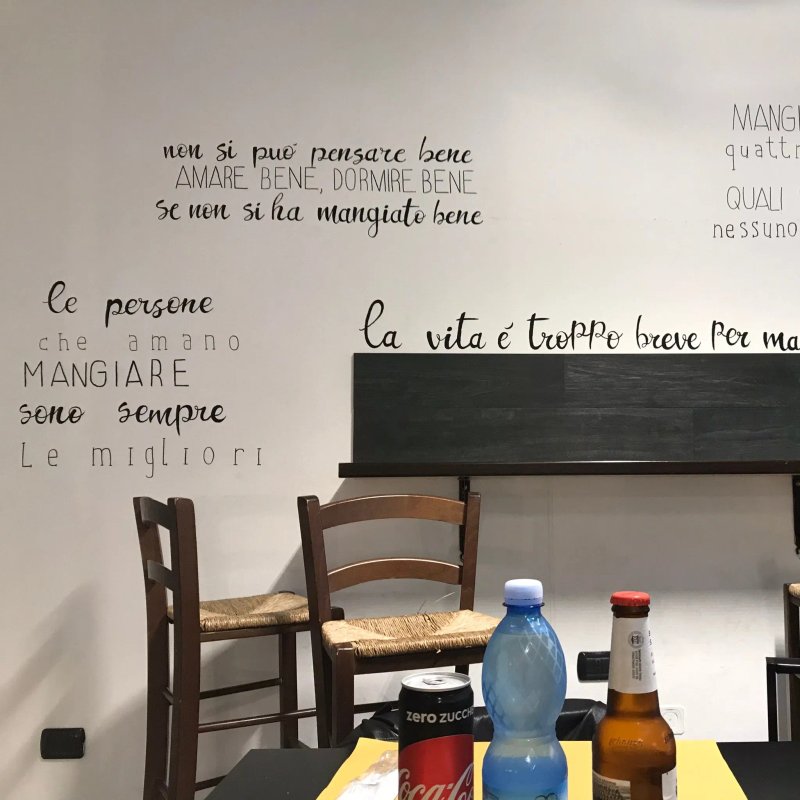 non si può pensare bene
AMARE BENE, DORMIRE BENE
se non si ha mangiato bene
le persone
che amano
MANGIARE
sono sempre
Le migliori
la vita é troppo breve per ma
MANGI
quattr
QUALI
nessuno
zero ZUCCH
Coca-C